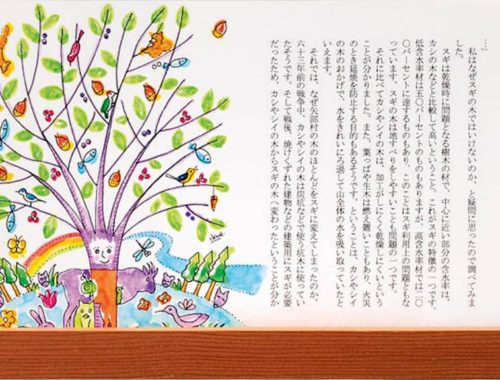 …」
　私はなぜスギの木ではいけないのか、と疑問に思ったので調べてみま
した。
　スギは乾燥時に問題となる樹木の材で、中心に近い部分の含水率は、
カシの木などと比較して高いということ、これがスギの特徴の一つです。
低含水率材は五〇パーセントのものもありますが、高含水率材では二〇
〇パーセントに達するものもあり、このことはスギ利用上の問題ともな
っています。スギの木は地すべりをしやすいことも問題の一つです。
　それに比べてカシやシイの木は、加工がしにくく乾燥しにくいという
ことが分かりました。また、葉っぱや生木は燃え難いこともあり、火災
のとき延焼を防止する目的もあるそうです。ということは、カシやシイ
の木のおかげで、水をきれいにろ過して山全体の水を吸い取っていたと
いえます。
　それでは、なぜ矢部村の木のほとんどをスギに変えてしまったのか。
六十三年前の戦争中、カシやシイの木は炭坑などで使う坑木に使ってい
たそうです。そして戦後、焼けくずれた建物などの建築用にスギが必要
だったため、カシやシイの木からスギの木へ変わったということが分か